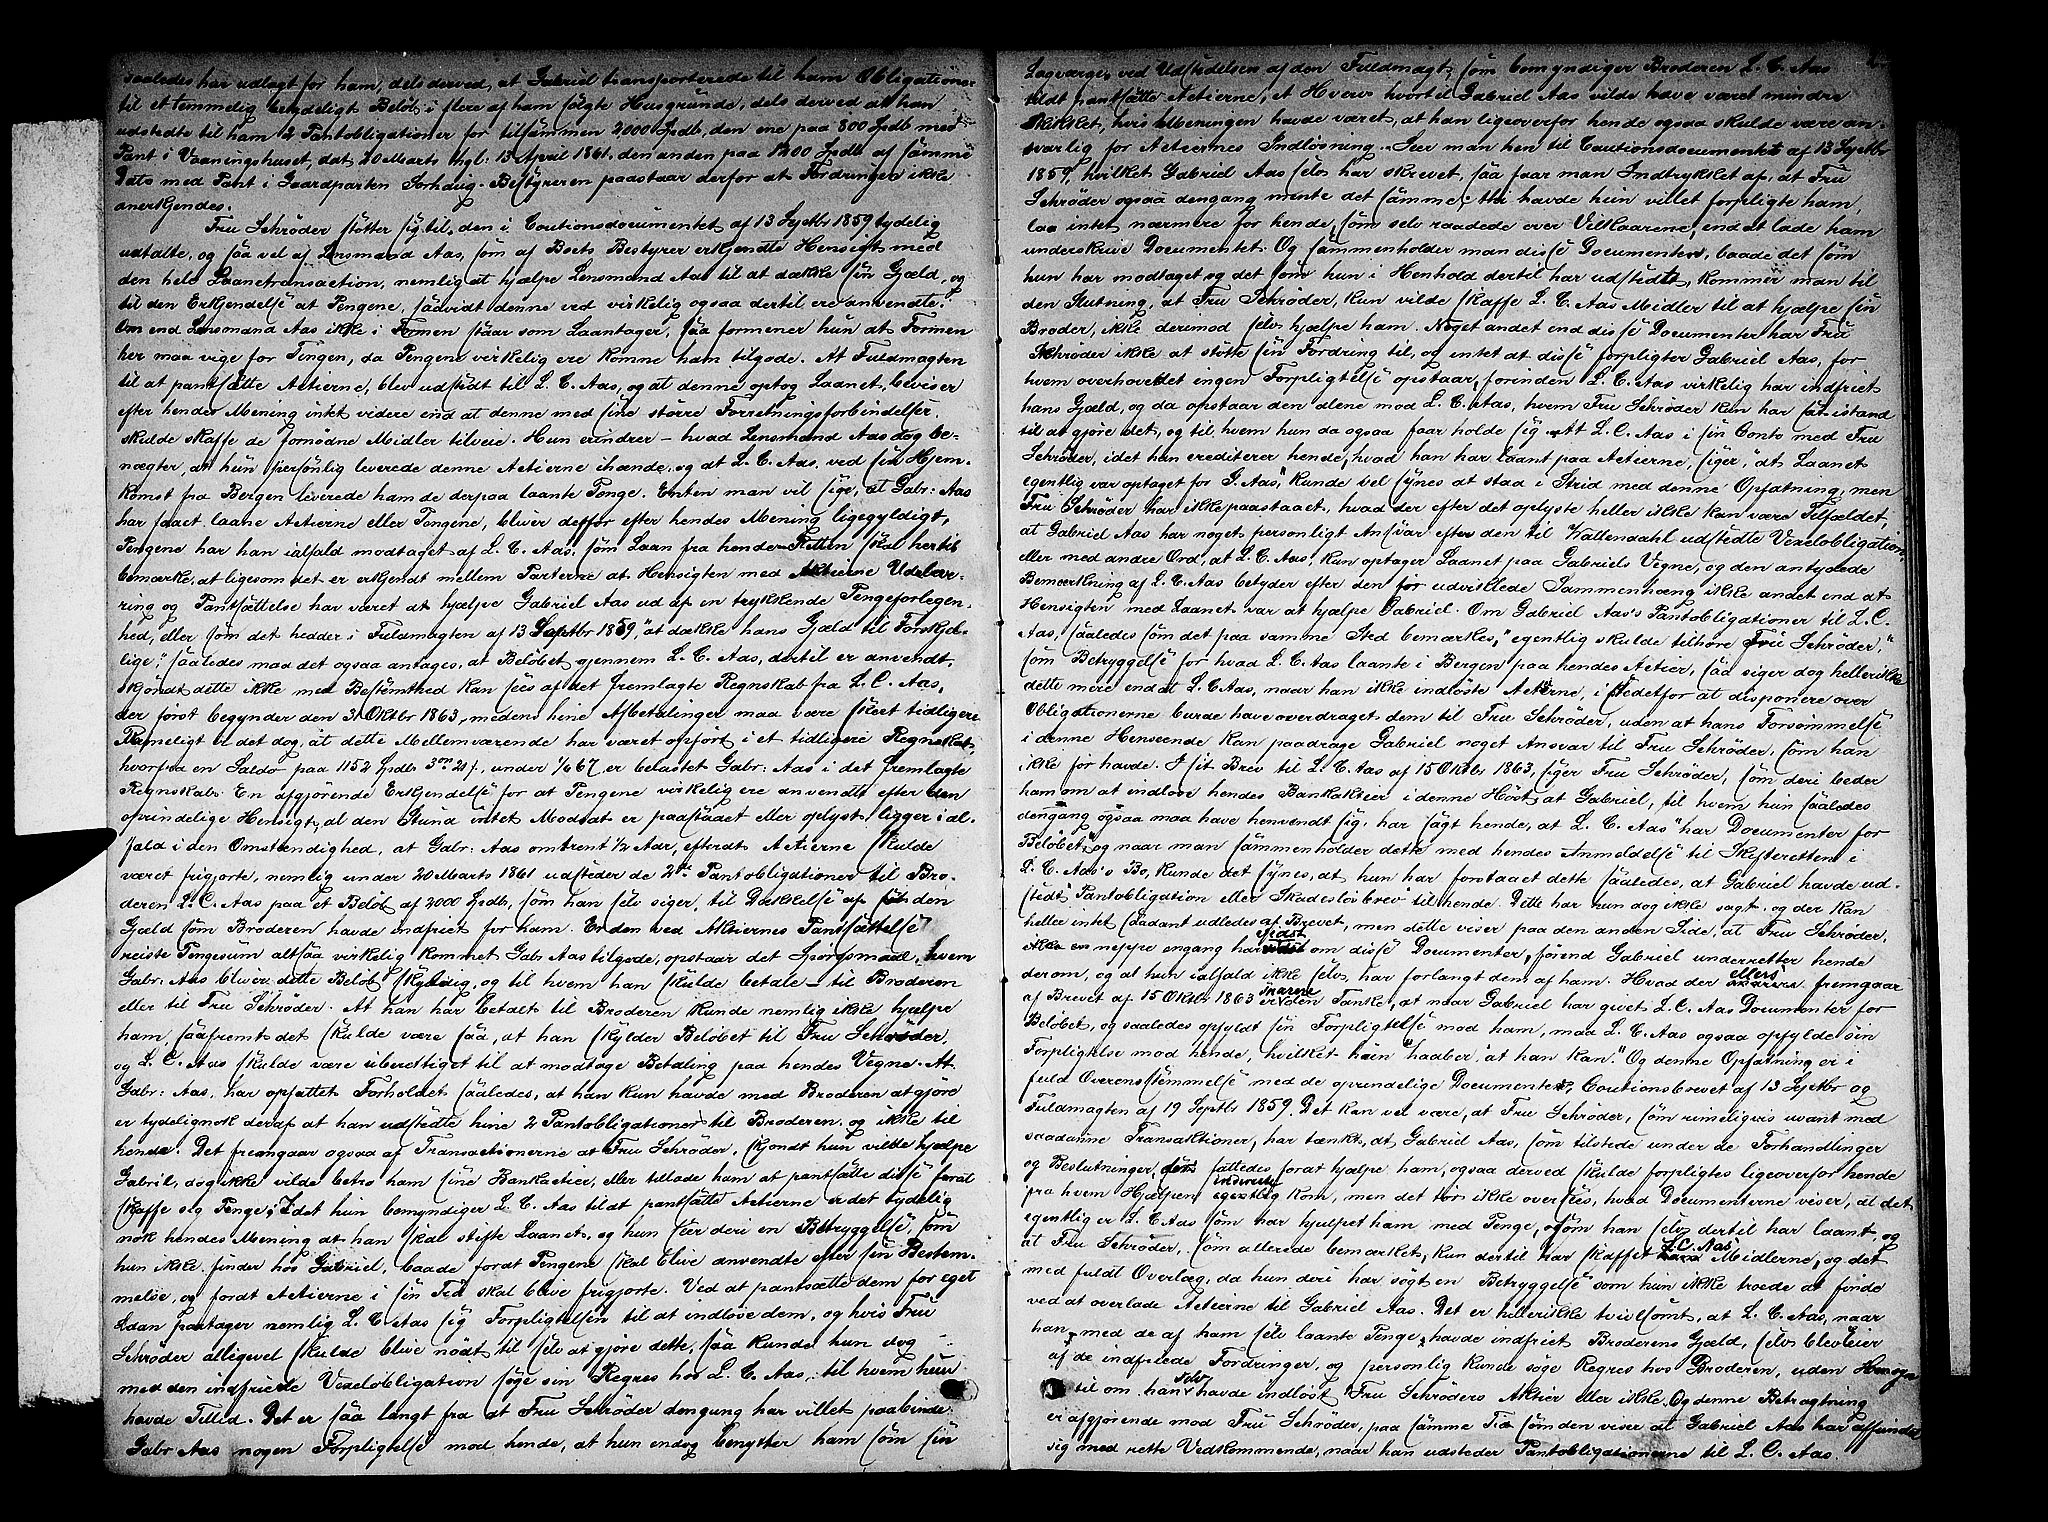 saaledes har udlagt for ham, dels derved, at Gabriel transporterede til ham Obligationer
til et temmelig betydeligt Beløb i flere af ham solgte Husgrunde, dels derved at han
udstedte til ham 2 Pantobligationer for tilsammen 2000 Spdlr, den ene paa 800 Spdlr med
Pant i Vaaningshuset, dat. 20 Marts thgl: 13 April 1861, den anden paa 1200 Spdlr af samme
Dato med Pant i Gaardparten Sorhaug. Bestyreren paastaar derfor at Fordringen ikke
anerkjendes.
Fru Schrøder støtter sig til, den i Cautionsdocumentet af 13 Septbr 1859 tydelig
udtalte, og saa vel af Lensmand Aas, som af Boets Bestyrer erkjendte Hensigt med
den hele Laanetransaction, nemlig at hjælpe Lensmand Aas til at dække sin Gjæld, og
til den Erkjendelse at Pengene, saavidt denne ved virkelig ogsaa dertil ere anvendte.
Om end Lensmand Aas ikke i Formen staar som Laantager, saa formener hun at Formen
her maa vige for Tingen, da Pengene virkelig ere komne ham tilgode. At Fuldmagten
til at pantsætte Actierne, blev udstedt til L. C. Aas, og at denne optog Laanet, beviser
efter hendes Mening intet videre end at denne med sine større Forretningsforbindelser
skulde skaffe de fornødne Midler tilveie. Hun erindrer – hvad Lensmand Aas dog be-
nægter, at hun personlig leverede denne Actierne ihænde, og at L. C. Aas, ved sin Hjem-
komst fra Bergen leverede ham de derpaa laante Penge. Enten man vil sige, at Gabr: Aas
har faaet laane Actierne eller Pengene, bliver derfor efter hendes Mening ligegyldigt,
Pengene har han ialfald modtaget af L. C. Aas, som Laan fra hende – Retten skal hertil
bemærke, at ligesom det er erkjendt mellem Parterne at Hensigten med Aktierne Udlever-
ring og Pantsættelse har været at hjælpe Gabriel Aas ud af en trykkende Pengeforlegen-
hed, eller som det hedder i Fuldmagten af 13 Septbr 1859, "at dække hans Gjæld til Forskjel-
lige," saaledes maa det ogsaa antages, at Beløbet gjennem L. C. Aas, dertil er anvendt,
skjøndt dette ikke med Bestemthed kan sees af det fremlagte Regnskab fra L. C. Aas,
der først begynder den 31 Oktbr 1863, medens hine Afbetalinger maa være skeet tidligere
Rimeligt er det dog, at dette Mellemværende har været opført i et tidligere Regnskab,
hvorfra en Saldo paa 1152 Spdlr 3 21 s, under 1/6 67, er belastet Gabr: Aas i det fremlagte
Regnskab. En afgjørende Erkjendelse for at Pengene virkelig ere anvendt efter den
oprindelige Hensigt, al den Stund intet Modsat er paastaaet eller oplyst, ligger i al-
fald i den Omstændighed, at Gabr: Aas omtrent 1/2 Aar, efterat Actierne skulde
været frigjorte, nemlig under 20 Marts 1861 udsteder de 2de Pantobligationer til Bro-
deren L. C. Aas paa et Beløb af 2000 Spdlr, som han selv siger, til Dækkelse af den
Gjæld som Broderen havde indfriet for ham. Er den ved Aktiernes Pantsættelse
reiste Pengesum altsaa virkelig kommet Gabr Aas tilgode, opstaar det Spørgsmaal, hvem
Gabr: Aas bliver dette Beløb skyldig, og til hvem han skulde betale – til Broderen
eller til Fru Schrøder. At han har betalt til Broderen kunde nemlig ikke hjælpe
ham, saafremt det skulde være saa, at han skylder Beløbet til Fru Schrøder,
og L. C. Aas skulde være uberettiget til at modtage Betaling paa hendes Vegne. At
Gabr: Aas, har opfattet Forholdet saaledes, at han kun havde med Broderen at gjøre
er tydelignok deraf at han udstedte hine 2 Pantobligationer til Broderen, og ikke til
hende. Det fremgaar ogsaa af Transactionerne at Fru Schrøder, skjondt hun vilde hjælpe
Gabriel, dog ikke vilde betro ham sine Bankactier, eller tillade ham at pantsætte disse forat
skaffe sig Penge; Idet hun bemyndiger L. C. Aas til at pantsætte Actierne er det tydelig
nok hendes Mening at han skal stifte Laanet, og hun ser deri en Betryggelse, som
hun ikke finder hos Gabriel, baade fordt Pengene skal blive anvendte efter sin Bestem-
melse, og fordt Actierne i sin Tid skal blive frigjorte. Ved at pantsætte dem for eget
Laan paatager nemlig L. C. Aas sig Forpligtelsen til at indløse dem, og hvis Fru
Schrøder alligevel skulde blive nødt til selv at gjøre dette, saa kunde hun dog
med den indfriede Vexelobligation søge sin Regres hos L. C. Aas, til hvem hun
havde Tillid. Det er saa langt fra at Fru Schrøder dengang har villet paabinde
Gabr Aas nogen Forpligtelse mod hende, at hun endog benytter ham som sin
Lagværge, ved Udstedelsen af den Fuldmagt, som bemyndiger Broderen L. C. Aas
tildt pantsætte Actierne, et Hverv hvortil Gabriel Aas vilde have været mindre
skikket, hvis Meningen havde været, at han ligeoverfor hende ogsaa skulde være an-
svarlig for Actiernes Indløsning. Seer man hen til Cautionsdocumentet af 13 Septbr
1859, hvilket Gabriel Aas selv har skrevet, saa faar man Indtrykket af, at Fru
Schrøder ogsaa dengang mente det samme; thi havde hun villet forpligte ham,
laa intet nærmere for hende, som selv raadede over Vilkaarene, end at lade ham
underskrive Documentet. Og sammenholder man disse Documenter, baade det som
hun har modtaget og det som hun i Henhold dertil har udstedt, kommer man til
den Slutning, at Fru Schrøder, kun vilde skaffe L. C. Aas Midler til at hjælpe sin
Broder, ikke derimod selv hjælpe ham. Noget andet end disse Documenter har Fru
Schrøder ikke at støtte sin Fordring til, og intet af disse forpligter Gabriel Aas, for
hvem overhovedet ingen Forpligtelse opstaar, forinden L. C. Aas virkelig har indfriet
hans Gjæld, og da opstaar den alene mod L. C. Aas, hvem Fru Schrøder kun har sat istand
til at gjøre det, og til hvem hun da ogsaa faar holde sig. At L. C. Aas i sin Conto med Fru
Schrøder, idet han crediterer hende, hvad han har laant paa Actierne, siger, "at Laanet
egentlig var optaget for G. Aas", kunde vel synes at staa i Strid med denne Opfatning, men
Fru Schrøder har ikke paastaaet, hvad der efter det oplyste heller ikke kan være Tilfældet,
at Gabriel Aas har noget personligt Ansvar efter den til Wallendahl udstedte Vexelobligation,
eller med andre Ord, at L. C. Aas, kun optager Laanet paa Gabriels Vegne, og den antydede
Bemærkning af L. C. Aas betyder efter den før udviklede Sammenhæng ikke andet end at
Hensigten med Laanet var at hjælpe Gabriel. Om Gabriel Aas's Pantobligationer til L. C.
Aas, saaledes som det paa samme Sted bemærkes, "egentlig skulde tilhøre Fru Schrøder,"
som Betryggelse for hvad L. C. Aas laante i Bergen paa hendes Actier, saa siger dog heller ikke
dette mere end at L. C. Aas, naar han ikke indløste Actierne, istedetfor at disponere over
Obligationerne burde have overdraget dem til Fru Schrøder, uden at hans Forsømmelse
i denne Henseende kan paadrage Gabriel noget Ansvar til Fru Schrøder, som han
ikke før havde. I sit Brev til L. C. Aas af 15 Oktbr 1863, siger Fru Schrøder, som deri beder
ham om at indløse hendes Bankaktier i denne Høst, at Gabriel, til hvem hun saaledes
dengang ogsaa maa have henvendt sig, har sagt hende, at L. C. Aas "har Documenter for
Beløbet", og naar man sammenholder dette med hendes Anmeldelse til Skifteretten i
L. C. Aas's Bo, kunde det synes, at hun har forstaaet dette saaledes, at Gabriel havde ud-
stedt Pantobligation eller Skadesløsbrev til hende. Dette har hun dog ikke sagt, og der kan
heller intet saadant udledes af Brevet, men dette viser paa den anden Side, at Fru Schrøder,
neppe engang har vidst om disse Documenter, førend Gabriel underretter hende
derom, og at hun ialfald ikke selv har forlangt dem af ham. Hvad der ellers fremgaar
af Brevet af 15 Oktbr 1863 er snarere den Tanke, at naar Gabriel har givet L. C. Aas Documenter for
Beløbet, og saaledes opfyldt sin Forpligtelse mod ham, maa L. C. Aas ogsaa opfylde sin
Forpligtelse mod hende, hvilket hun "haaber at han kan." Og denne Opfatning er i
fuld Overensstemmelse med de oprindelige Documenter, Cautionsbrevet af 13 Septbr og
Fuldmagten af 19 Septbr 1859. Det kan vel være, at Fru Schrøder, som rimeligvis uvant med
saadanne Transaktioner, har tænkt, at Gabriel Aas, som tilstede under de Forhandlinger
og Beslutninger, der fattedes forat hjælpe ham, ogsaa derved skulde forpligtes ligeoverfor hende
fra hvem Hjælpen indirecte kom, men det tør ikke oversees, hvad Documenterne viser, at det
egentlig er L. C. Aas som har hjulpet ham med Penge, som han selv dertil har laant, og
at Fru Schrøder, som allerede bemærket, kun dertil har skaffet L. C. Aas Midlerne, og det
med fuldt Overlæg, da hun deri har søgt en Betryggelse som hun ikke troede at finde
ved at overlade Actierne til Gabriel Aas. Det er heller ikke tvivlsomt, at L. C. Aas, naar
han, med de af ham selv laante Penge, havde indfriet Broderens Gjæld, selv blev Eier
af de indfriede Fordringer, og personlig kunde søge Regres hos Broderen, uden Hensyn
til om han selv havde indløst Fru Schrøders Aktier eller ikke. Og denne Betragtning
er afgjørende mod Fru Schrøder, paa samme Tid som den viser at Gabriel Aas har affundet
sig med rette Vedkommende, naar han udsteder Pantobligationerne til L. C. Aas.